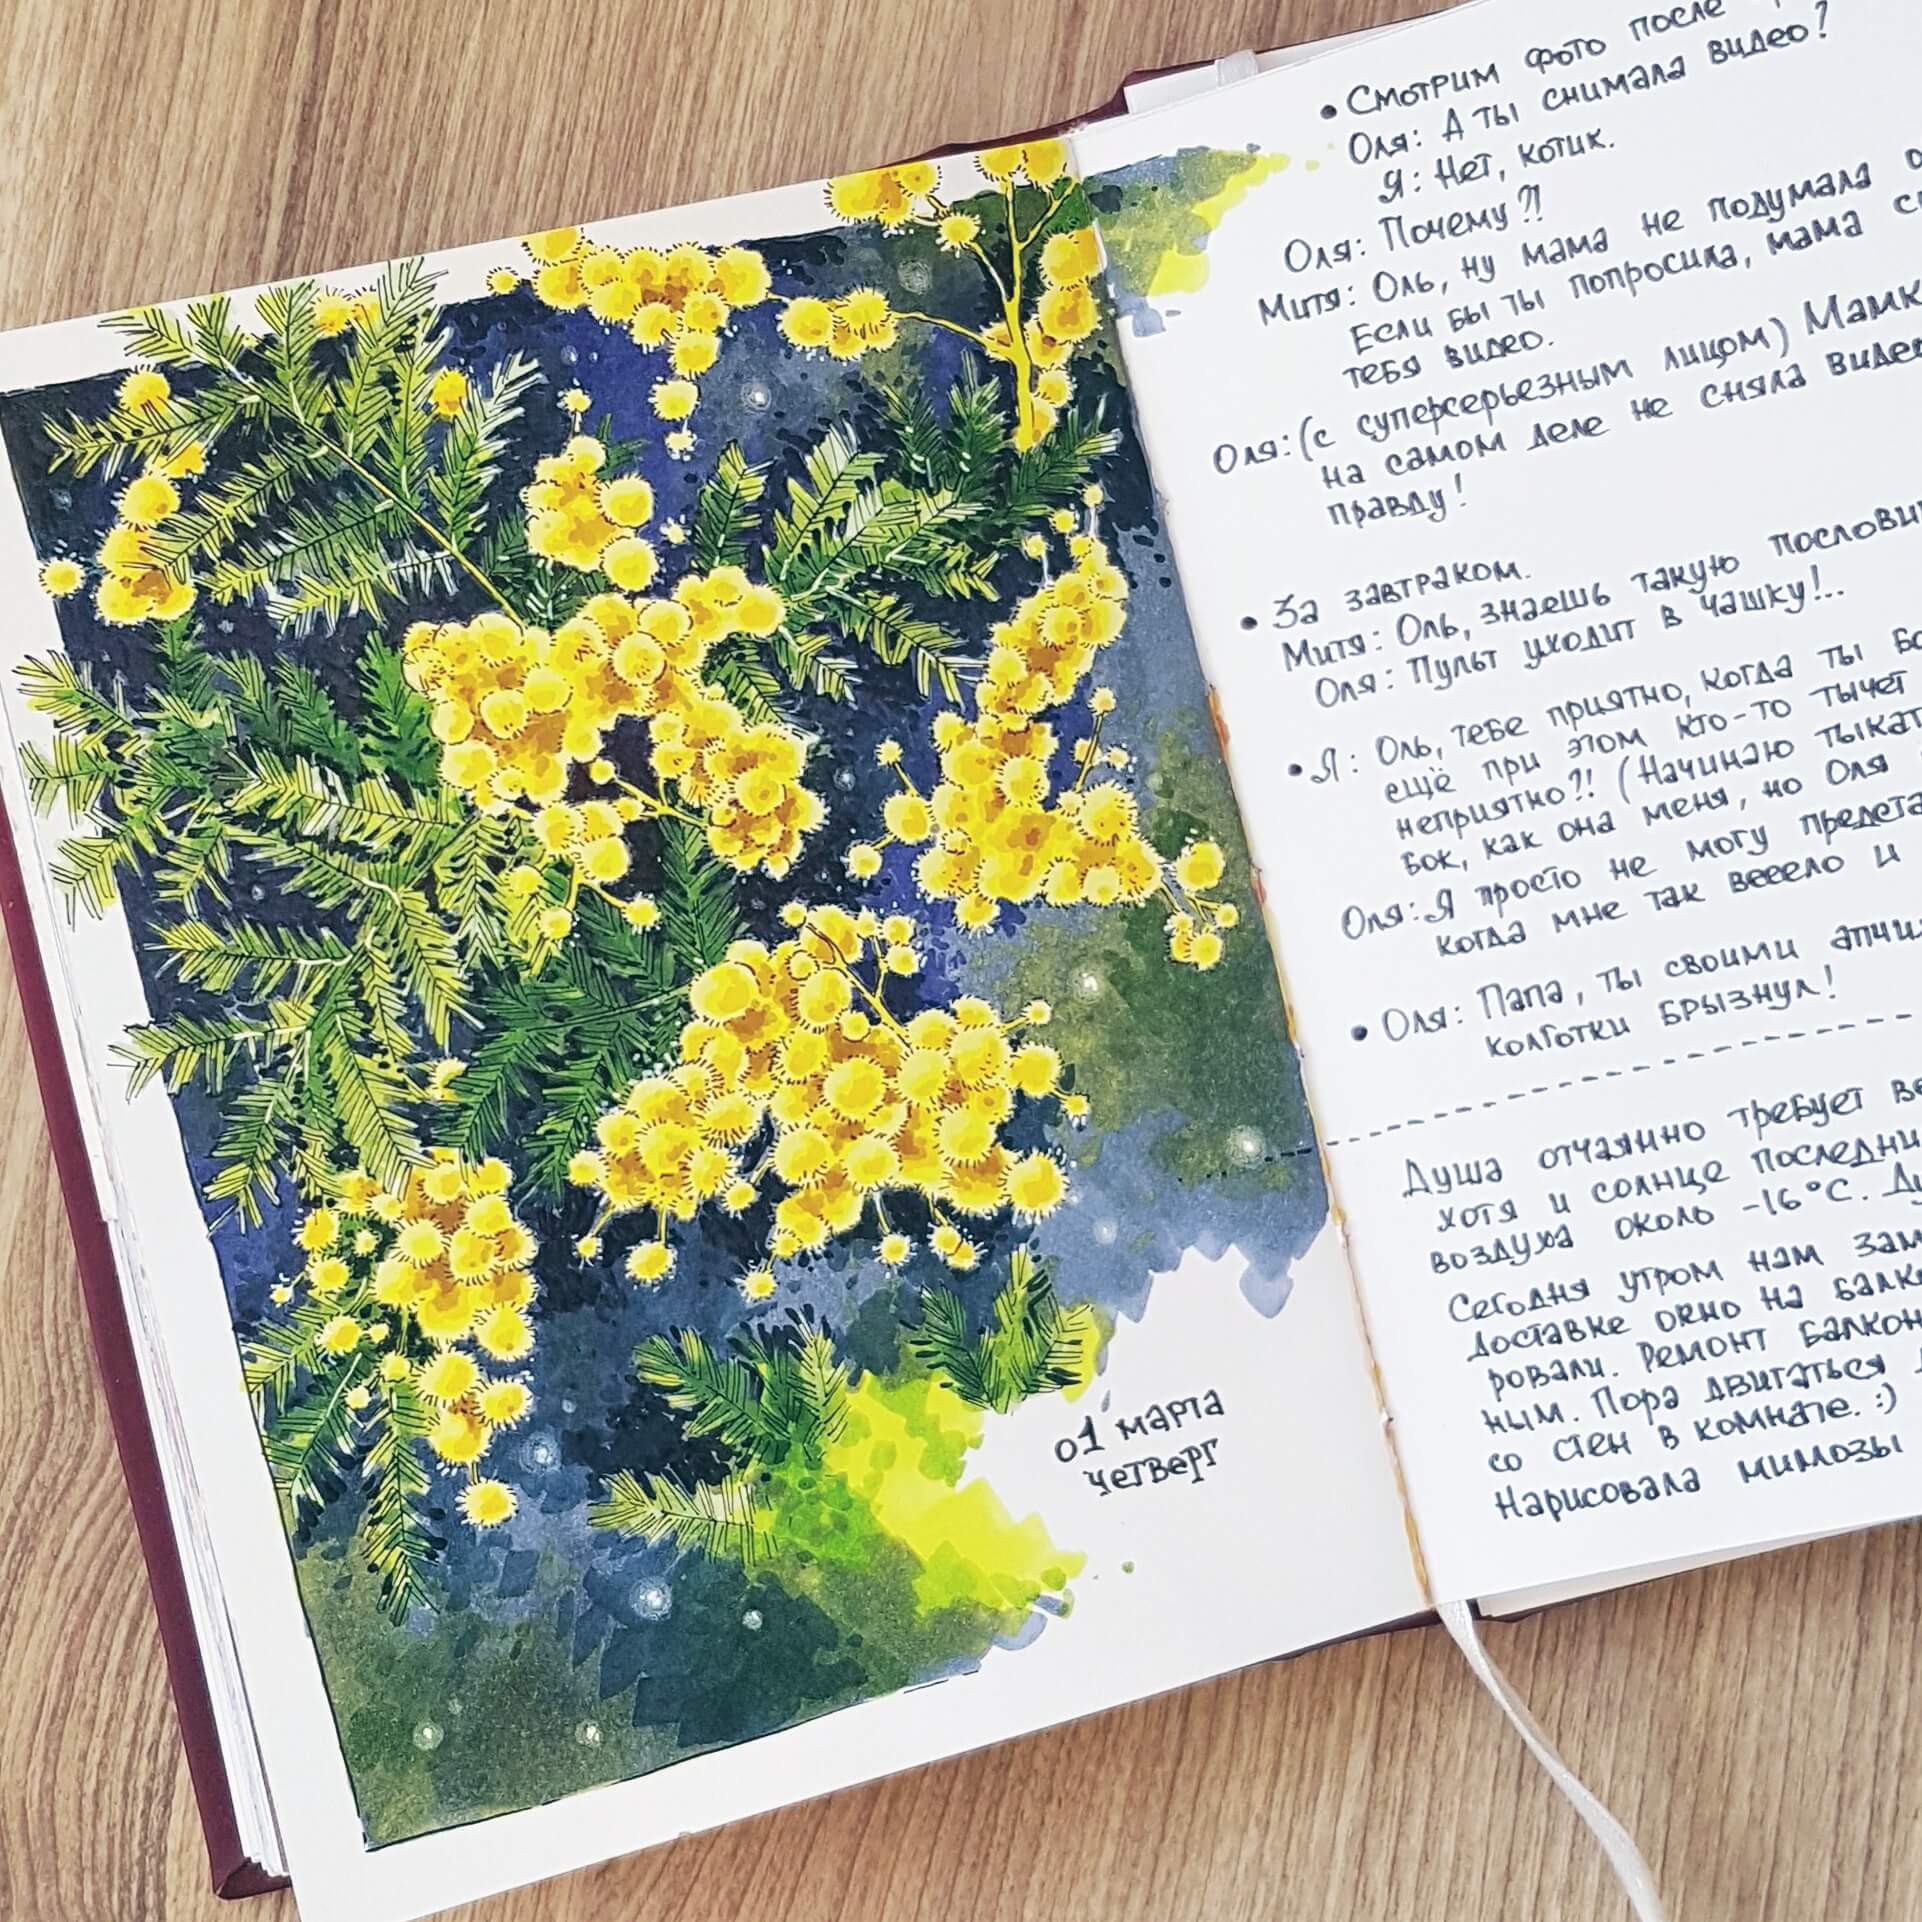 01 марта
четверг
• Смотрим фото после
Оля: А ты снимала видео?
Я: Нет, котик.
Оля: Почему?!
Митя: Оль, ну мама не подумала
Если бы ты попросила, мама
тебя видео.
Оля: (с суперсерьезным лицом)
на самом деле не сняла
правду!
• За завтраком.
Митя: Оль, знаешь такую
Оля: Пульт уходит в чашку!..
• Я: Оль, тебе приятно, когда ты
ещё при этом кто-то тычет
неприятно?! (Начинаю
бок, как она меня, но Оля
Оля: Я просто не могу
когда мне так вееело и
• Оля: Папа, ты своими
колготки брызнул!
Душа отчаянно требует
хотя и солнце
воздуха около -16°С.
Сегодня утром нам
доставке окно на
ровали. Ремонт
ным. Пора двигаться
со стен в комнате. :)
Нарисовала мимозы